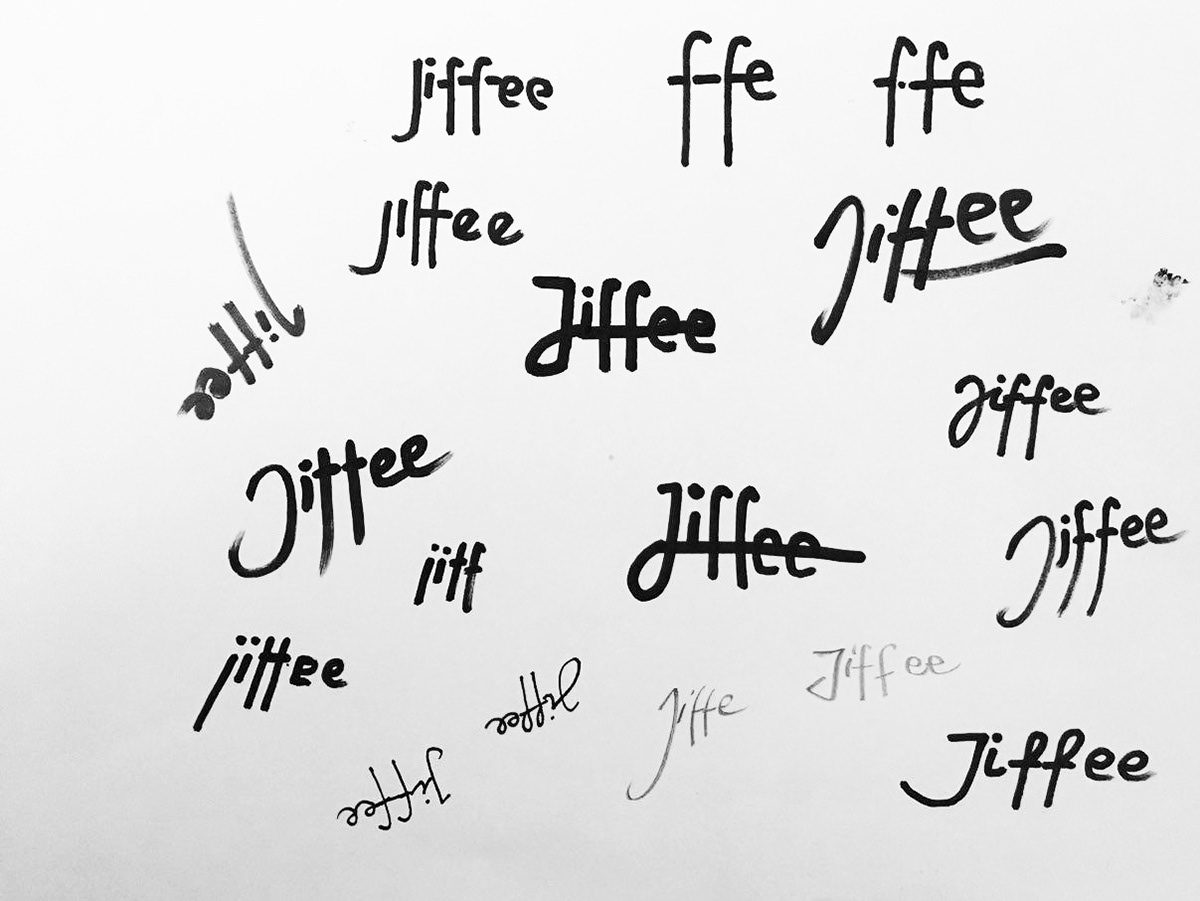 Jiffee
ffe
ffe
jiffee
Jiffee
Jiffee
Jiffee
Jiffee
Jiffee
Jiffee
Jiffee
jiff
jiffee
Jiffee
Jiffee
Jiffee
Jiffe
Jiffee
Jiffee